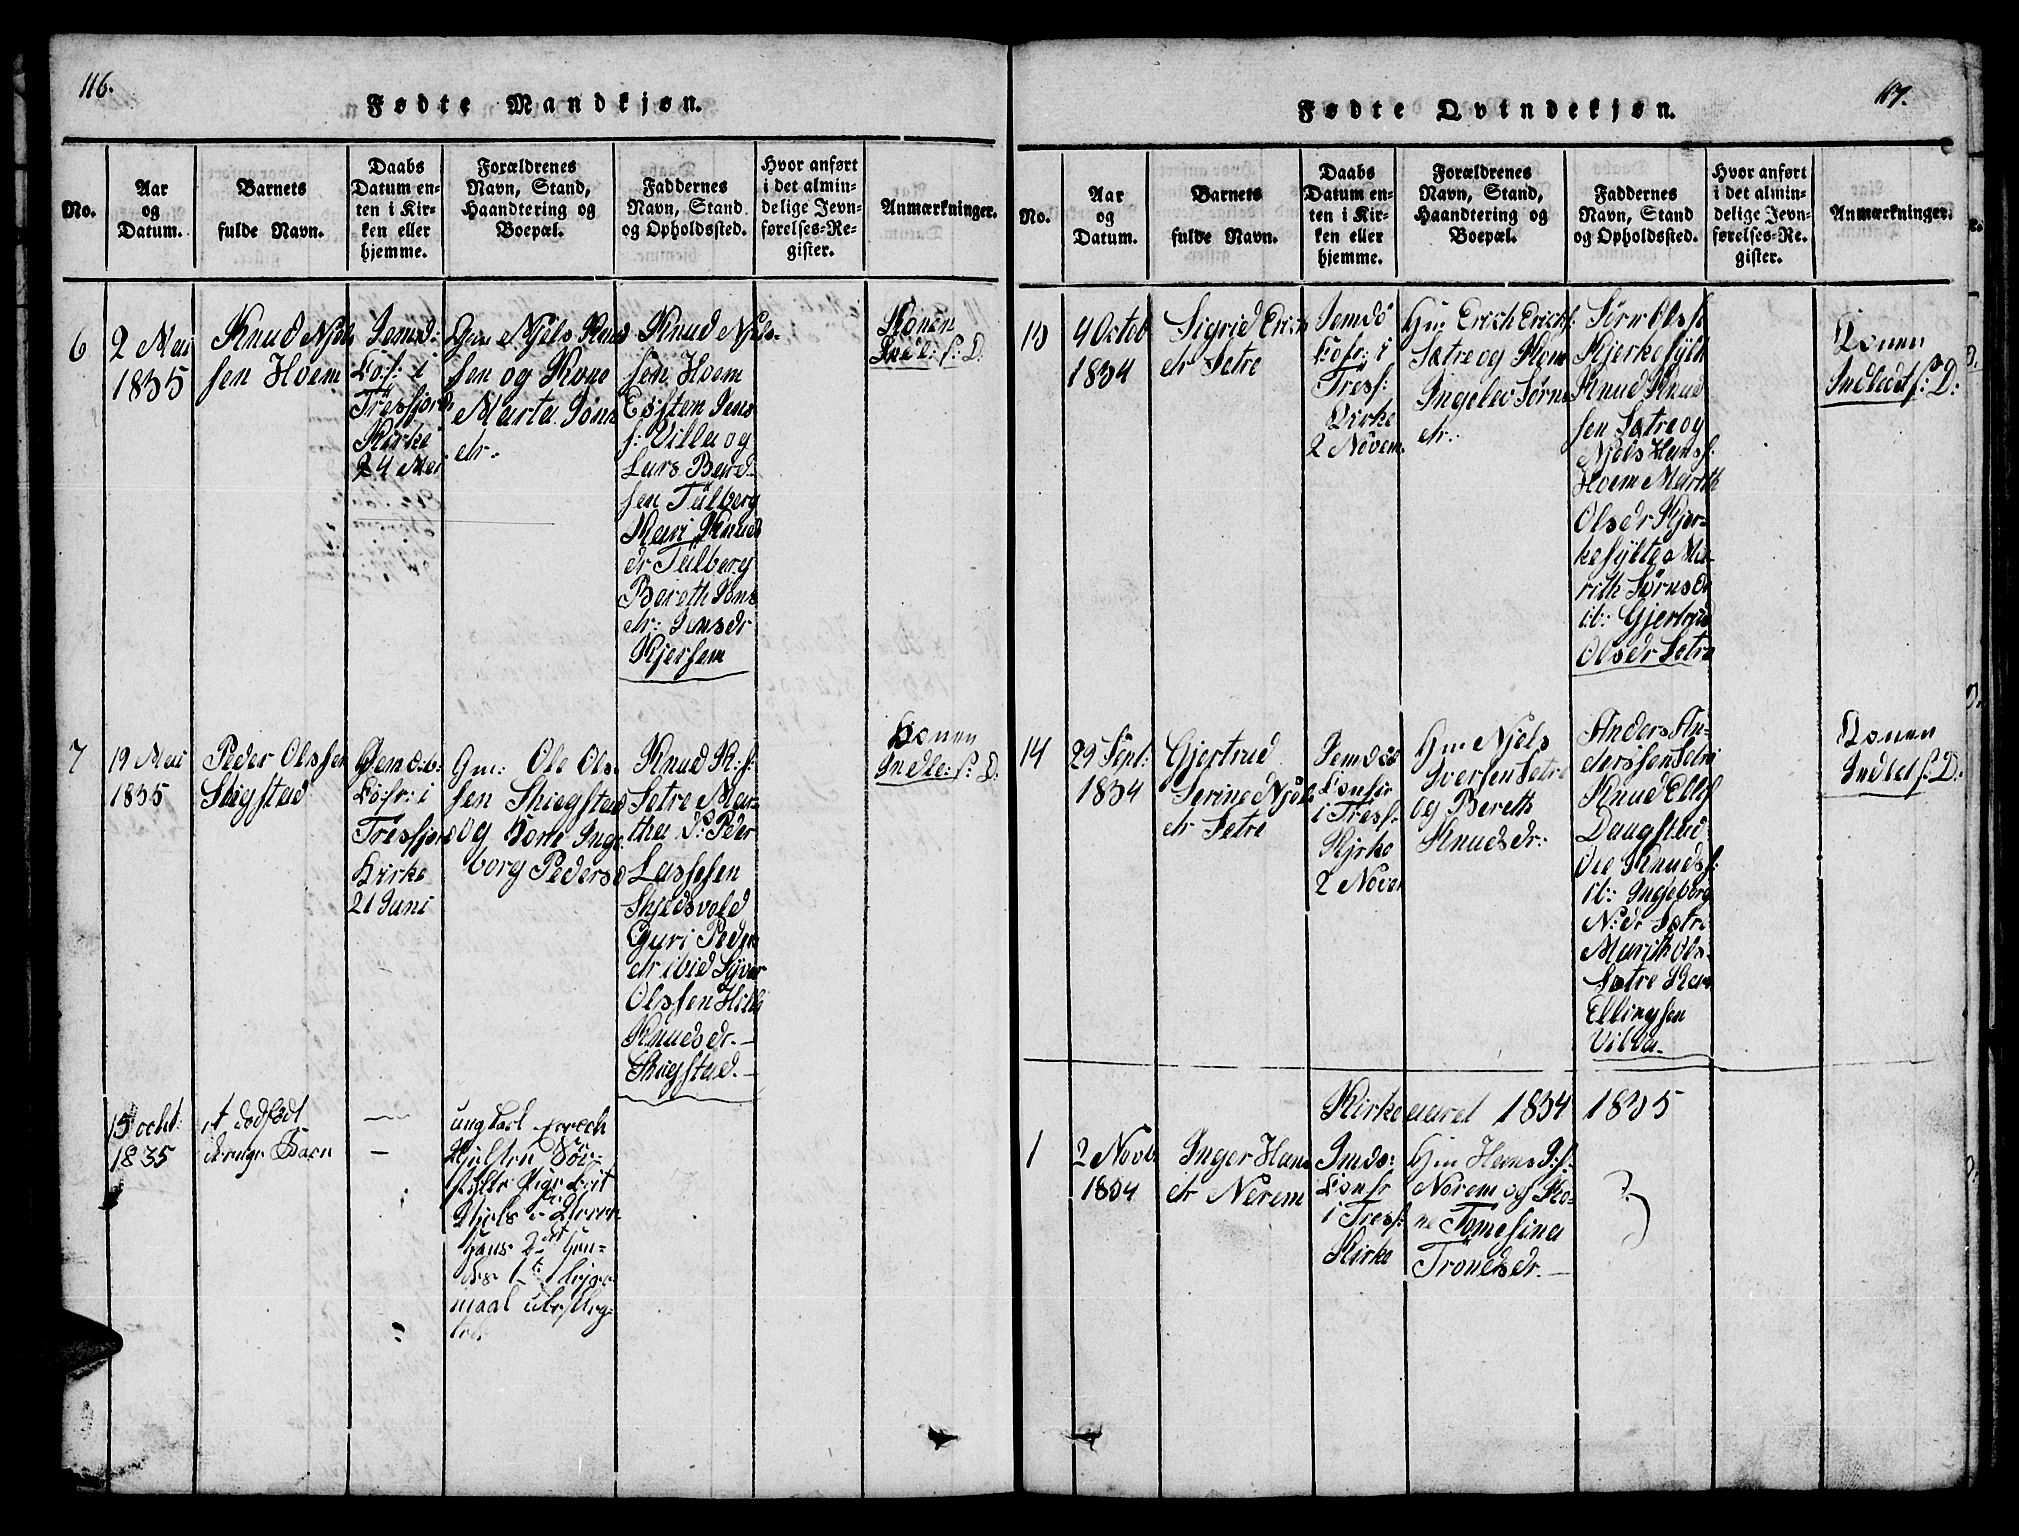 116.
Fødte Mandkjøn.
No.
Aar
og
Datum.
Barnets
fulde Navn.
Daabs
Datum en-
ten i Kir-
ken eller
hjemme.
Forældrenes
Navn, Stand,
Haandtering og
Boepæl.
Faddernes
Navn, Stand
og Opholdssted.
Hvor anført
i det almin-
delige Jevn-
førelses-Re-
gister.
Anmærkninger.
6
2 Mai
1835
Knud Njels
sen Hoem
Jemd:
Cof: i
Tresfjord
Kirke
24 Mai
Gm Njels Knud
sen og Kone
Marta Jons
dr:
Knud Njels-
sen Hoem
Eøsten Jens
s: Villa og
Lars Bend-
sen Tülberg
Mari Knuds
dr Tülberg
Bereth Jons
dr: Jensdr
Kjersem
Konen
Indl: f: D:
7
19 Mai
1835
Peder Olssen
Skigstad
Jemdøb:
Cofr: i
Tresfjord
Kirke
21 Juni
Gm: Ole Ols
sen Skiegstad
og Kone Inge
borg Pedersd
Knud K: s:
Sætre Mar-
tha P: Peder
Lassesen
Skjedsvold
Guri Peders
dr ibid Syver
Olssen Hilla
Knudsdr.
Skigstad.
Konen
Indle: f: D:
15 ocht:
1835
et dødfødt
drenge Barn
ungkarl
Niels
Hans 2det hen-
des 1te Leier-
maal
117.
Fødte Qvindekjøn.
No.
Aar
og
Datum.
Barnets
fulde Navn.
Daabs
Datum en-
ten i Kir-
ken eller
hjemme.
Forældrenes
Navn, Stand,
Haandtering og
Boepæl.
Faddernes
Navn, Stand
og Opholdssted.
Hvor anført
i det almin-
delige Jevn-
førelses-Re-
gister.
Anmærkninger.
13
4 Octob
1834
Sigrid Erichs
dr Sætre
Jemdø
Cofr: i
Tresf:
Kirke
2 Novem.
Gm Erich Erichs:
Sætre og Kone
Ingelev Sørns
dr:
Sørn Olss:
Kjerkesylt
Knud Knud
sen Sætre og
Njels Hans:
Hoem Marith
Olsdr Kjer-
kesyltes Ma-
rith Sørnsdr
ib: Gjertrud
Olsdr Sætre
Konen
Indledt f: D:
14
29 Sept:
1834
Gjertrud
Serine Njels
dr Sætre
Jemdøb
Confir
i Tresf:
Kjrke
2 Novem
Gm Njels
Iversen Sætre
og Bereth
Knudsdr:
Anders An-
derssen Sætre
Knud Ells
Daugstad
Ole Knuds:
ib: Ingjeborg
N: dr Sætre
Marith Ols-
Sætre Kari
Ellingsen
Villa.
Konen
Indlet f: D:
Kirkeaaret 1834 1835
1
2 Novb
1834
Inger Hans
dr Nerem
Jmdø:
Confr
i Tresf:
Kirke
Gm Hans P: s:
Nerem og Ko-
ne Tomesina
Trondsdr.
?